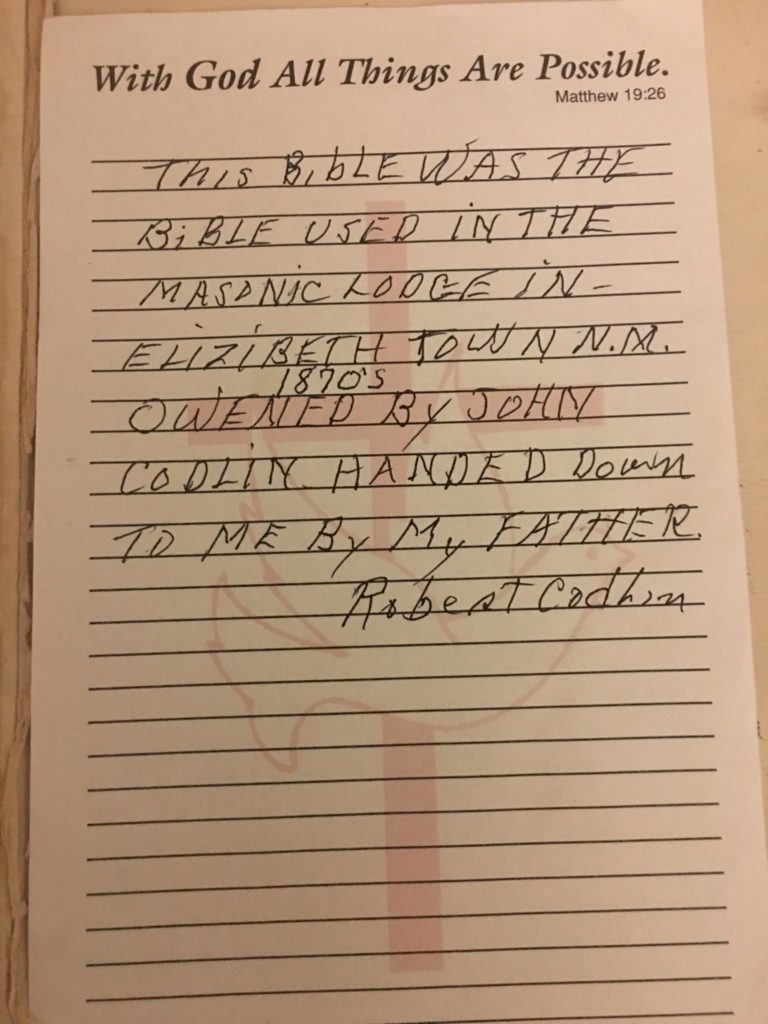 With God All Things Are Possible.
Matthew 19:26
This BibLE WAS THE
BiBLE USED IN THE
MASONIC LODGE IN-
ELIZIBETH TOWN N.M.
1870'S
OWENED By JOHN
CODLIN. HANDED Down
TO ME By My FATHER.
Robert Codlin